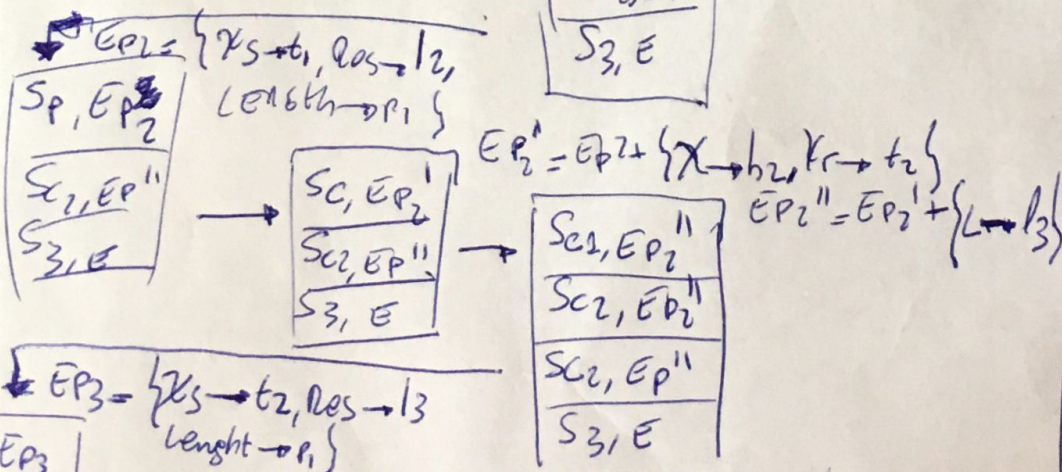 S3, E
EP2 = {XS→t1, Res→l2,
Length→P1}
SP, EP2
SC2, EP''
S3, E
SC, EP2'
SC2, EP''
S3, E
EP2' = EP2+ {X→h2, Xr→t2}
EP2'' = EP2' + {L→l3}
SC1, EP2''
SC2, EP2''
SC2, EP''
S3, E
EP3 = {XS→t2, Res→l3
Lenght→P1}
EP3